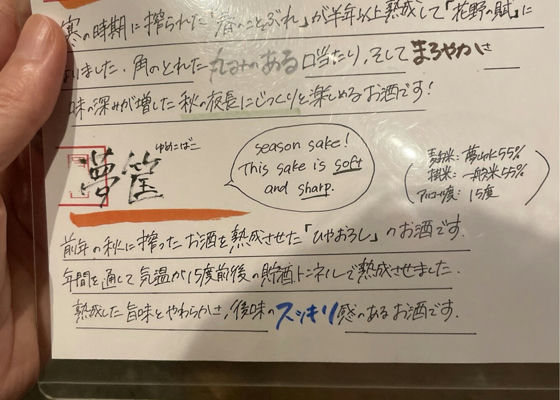 寒の時期に搾られた「春のことぶれ」が半年以上熟成して「花野の賦」に
いました。角のとれた丸みのある口当たり、そしてまろやかさ
味の深みが増した秋の夜長にじっくりと楽しめるお酒です！
ゆめこばこ
夢筐
season sake!
This sake is soft
and sharp.
麹米：夢山水55%
掛米：一般米55%
アルコール度：15度
前年の秋に搾ったお酒を熟成させた「ひやおろし」のお酒です。
年間を通して気温が15度前後の貯酒トンネルで熟成させました。
熟成した旨味とやわらかさ、後味のスッキリ感のあるお酒です。